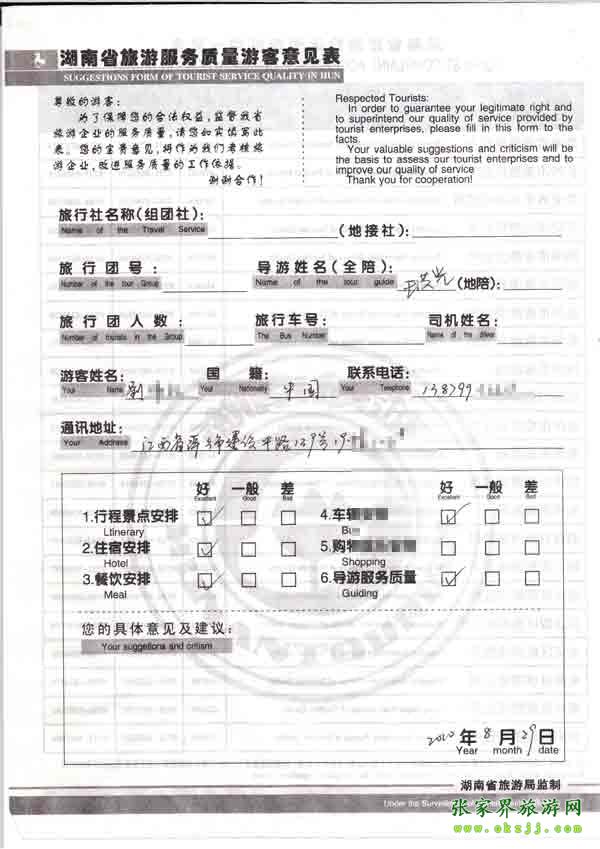 湖南省旅游服务质量游客意见表
SUGGESTIONS FORM OF TOURIST SERVICE QUALITY IN HUN
尊敬的游客:
为了保障您的合法权益,监督我省
旅游企业的服务质量,请您如实填写此
表。您的宝贵意见,将作为我们考核旅
游企业,改进服务质量的工作依据。
谢谢合作!
Respected Tourists:
In order to guarantee your legitimate right and
to superintend our quality of service provided by
tourist enterprises, please fill in this form to the
facts.
Your valuable suggestions and criticism will be
the basis to assess our tourist enterprises and to
improve our quality of service
Thank you for cooperation!
旅行社名称(组团社): (地接社):
Name of the Travel Service
旅行团号: 导游姓名(全陪): (地陪):
Number of the tour Group Name of the tour guide
旅行团人数: 旅行车号: 司机姓名:
Number of tourists in the Group The Bus Number Name of the driver
游客姓名: 国籍: 中国 联系电话: 138799
Your Name Your Nationality Your Telephone
通讯地址: 江西省萍乡市建设中路129号19-
Your Address
好 一般 差 好 一般 差
Excellent Good Bad Excellent Good Bad
1.行程景点安排 4.车辆
Ltinerary
2.住宿安排 5.购物
Hotel Shopping
3.餐饮安排 6.导游服务质量
Meal Guiding
您的具体意见及建议:
Your suggetions and critism
2010年8月29日
Year month date
湖南省旅游局监制
Under the Surveil
张家界旅游网
www.okzjj.com